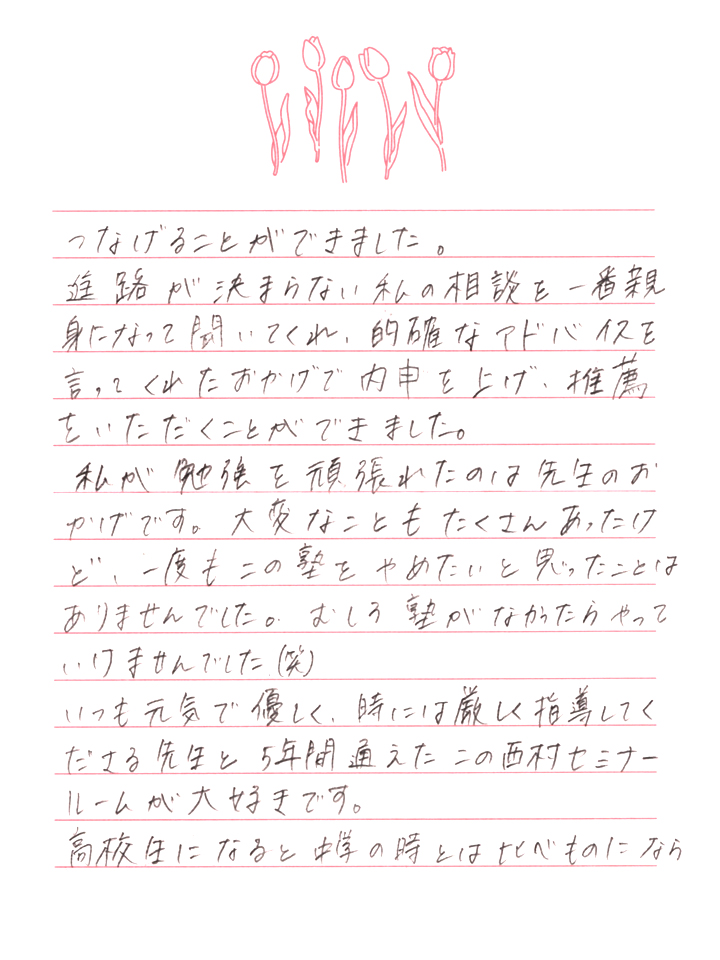 つなげることができました。
進路が決まらない私の相談を一番親
身になって聞いてくれ、的確なアドバイスを
言ってくれたおかげで内申を上げ、推薦
をいただくことができました。
私が勉強を頑張れたのは先生のお
かげです。大変なこともたくさんあったけ
ど、一度もこの塾をやめたいと思ったことは
ありませんでした。むしろ塾がなかったらやって
いけませんでした(笑)
いつも元気で優しく、時には厳しく指導してく
ださる先生と5年間通えたこの西村セミナー
ルームが大好きです。
高校生になると中学の時とは比べものになら